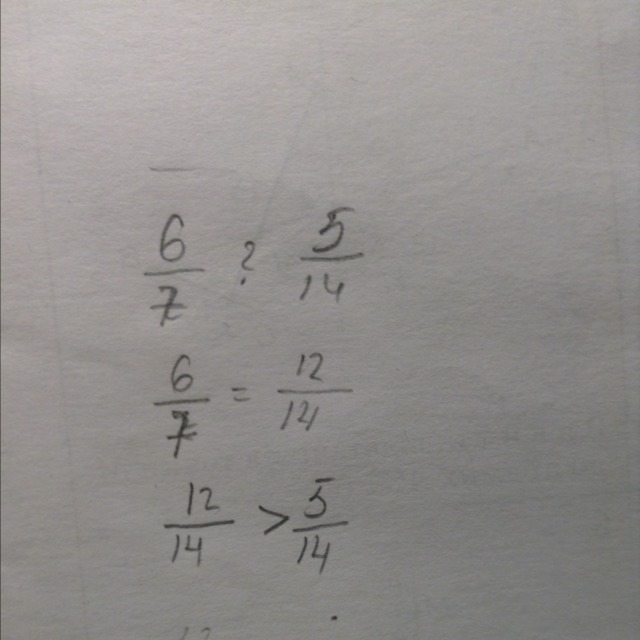 6/7 ? 5/14
6/7 = 12/14
12/14 > 5/14